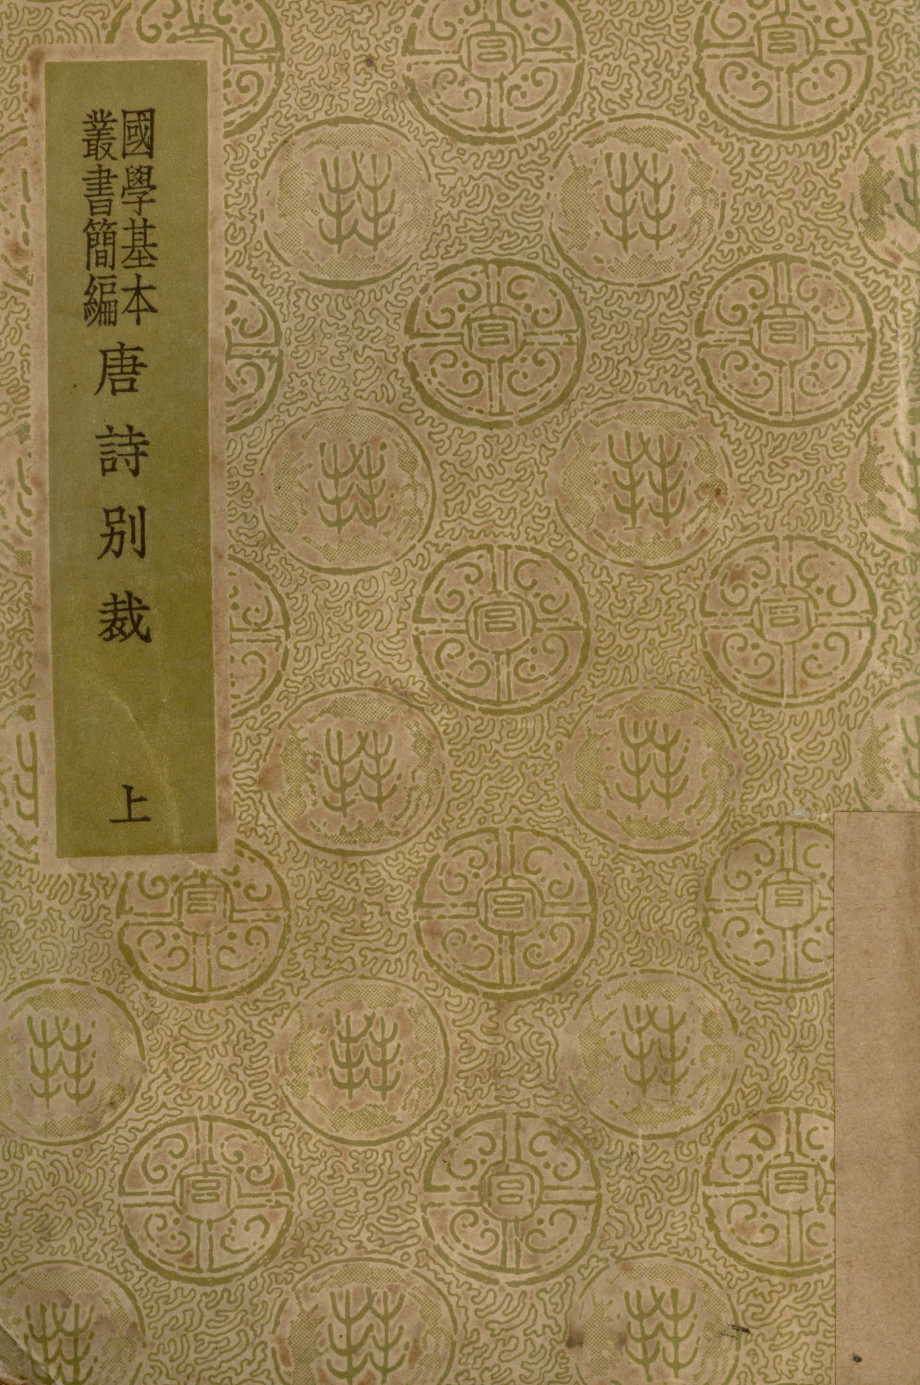 國學基本
叢書簡編
唐詩別裁
上